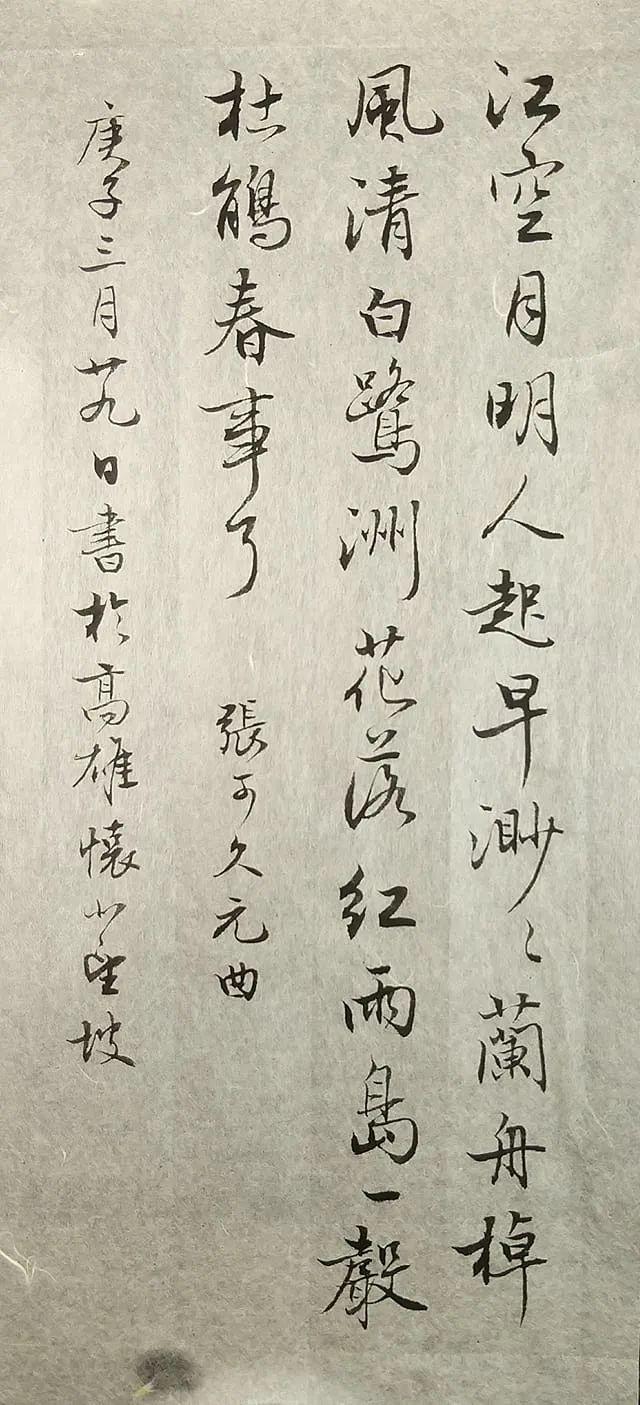 江空月明人起早渺〻蘭舟棹
風清白鷺洲花落紅雨島一聲
杜鵑春事了 張可久元曲
庚子三月廿九日書於高雄懷小望坡